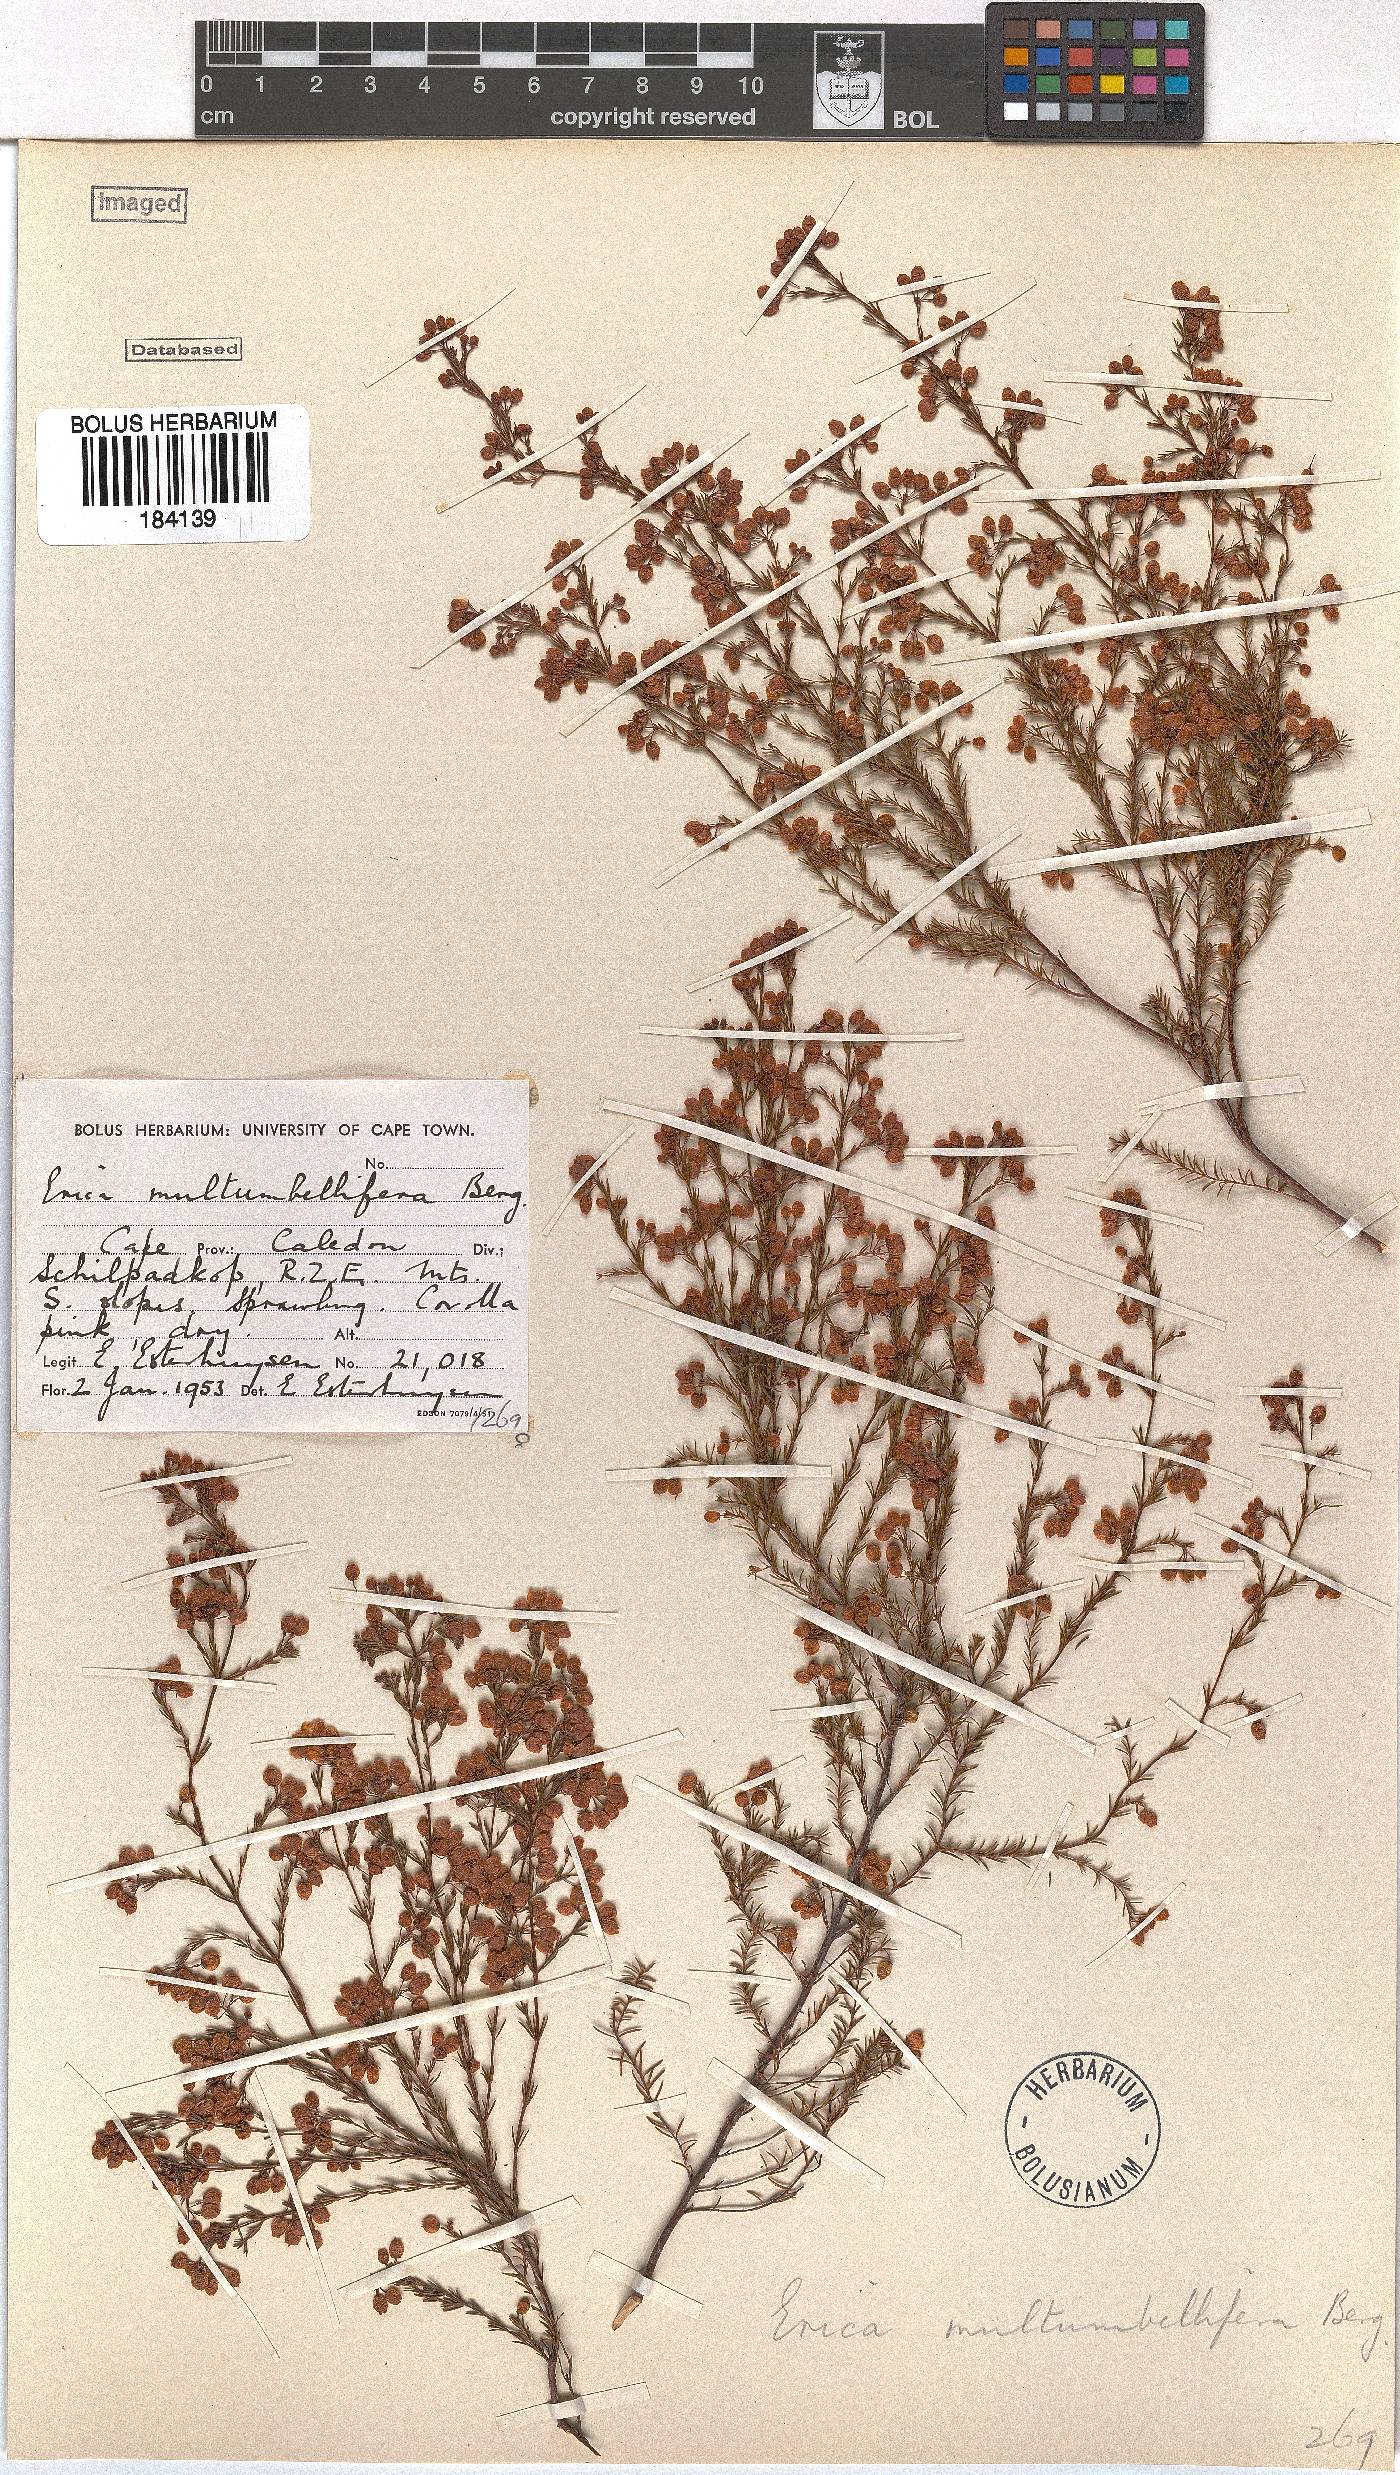 0 1 2 3 4 5 6 7 8 9 10
cm
copyright reserved
BOL
Imaged
Databased
BOLUS HERBARIUM
184139
BOLUS HERBARIUM: UNIVERSITY OF CAPE TOWN.
No.
Erica multumbellifera Berg.
Cape Prov.: Caledon Div.;
Schilpadkop, R.Z.E. Mts.
S. slopes, Sprawling. Corolla
pink, dry. Alt.
Legit E. Esterhuysen No. 21,018
Flor. 2 Jan. 1953 Det. E Esterhuysen
EDSON 7079/4/51
269
HERBARIUM
BOLUSIANUM
Erica multumbellifera Berg.
269